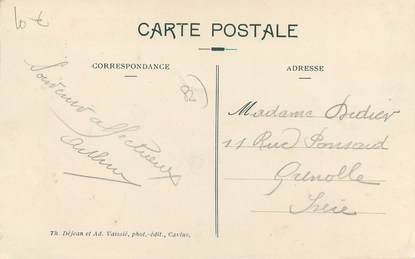 10 €
CARTE POSTALE
CORRESPONDANCE
ADRESSE
Souvenir affectueux
Madame Didier
11 Rue Ponsard
Grenoble
Isère
Th. Déjean et Ad. Vaissié, phot.-édit., Caylus.